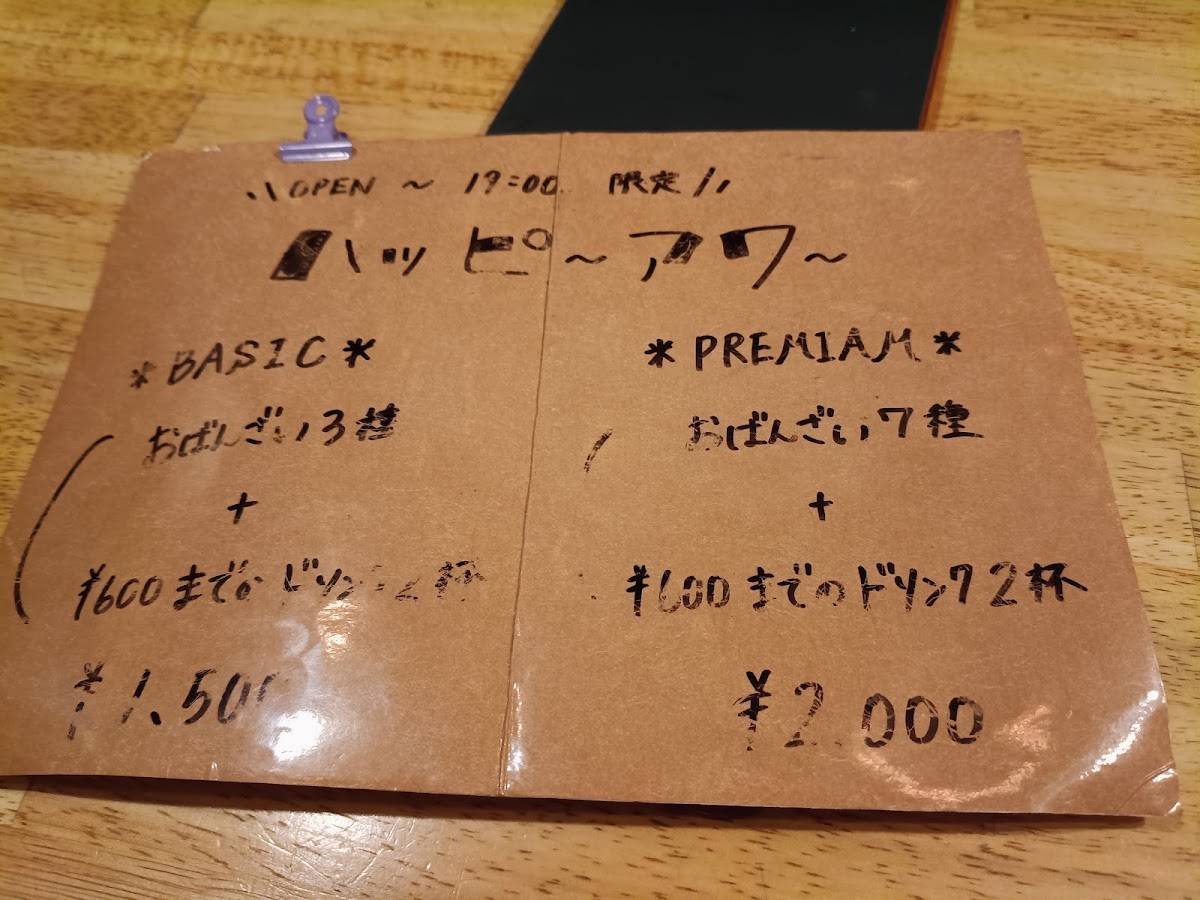 OPEN ～ 19:00 限定
ハッピ～アワ～
*BASIC*
おばんざい3種
+
¥600までのドリンク2杯
¥1,500
*PREMIAM*
おばんざい7種
+
¥600までのドリンク2杯
¥2,000